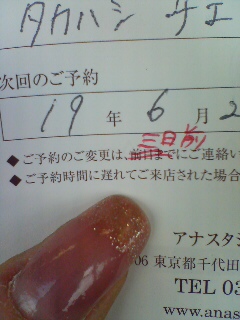 タカハシ サエ
次回のご予約
19 年 6 月 2
三日前
◆ご予約のご変更は、前日までにご連絡い
◆ご予約時間に遅れてご来店された場合
アナスタシ
06 東京都千代田
TEL 03
www.anas